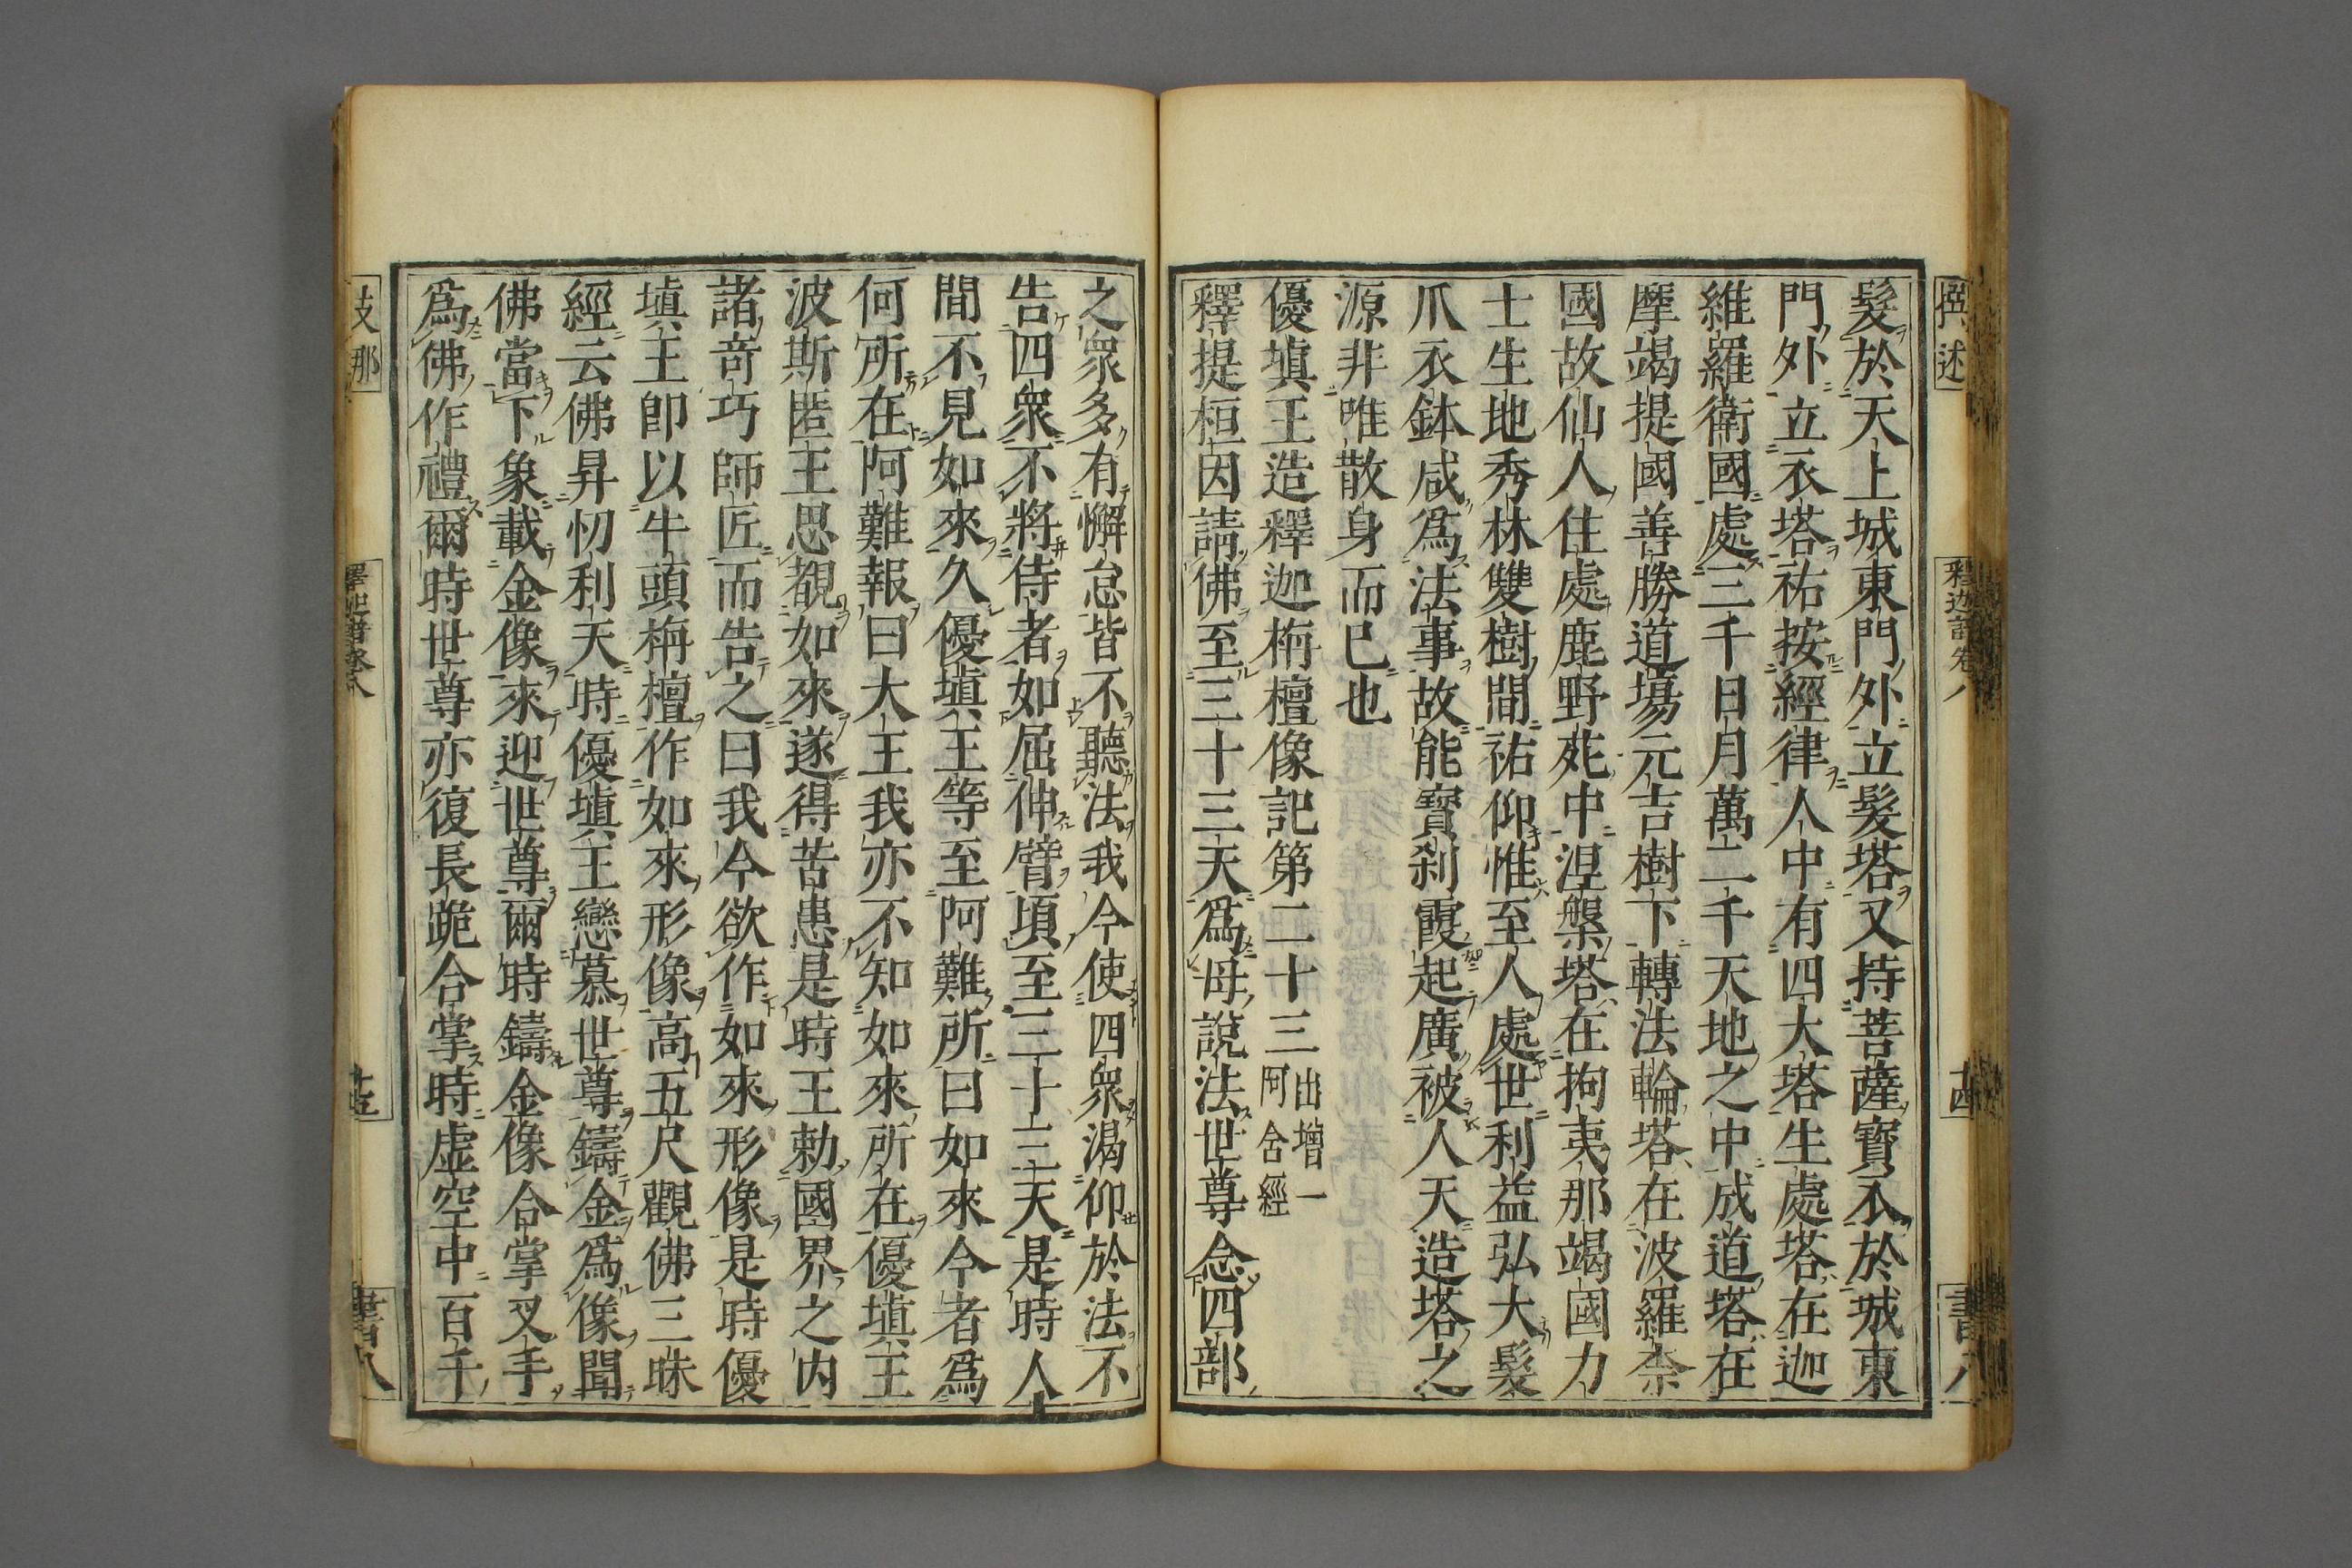 髮於天上城東門外立髮塔又持菩薩寶衣於城東
門外立衣塔祐按經律人中有四大塔生處塔在迦
維羅衛國處三千日月萬二千天地之中成道塔在
摩竭提國善勝道場元吉樹下轉法輪塔在波羅柰
國故仙人住處鹿野苑中涅槃塔在拘夷那竭國力
士生地秀林雙樹間祐仰惟至人處世利益弘大髮
爪衣鉢咸爲法事故能寶刹霞起廣被人天造塔之
源非唯散身而已也
優塡王造釋迦栴檀像記第二十三出增一阿含經
釋提桓因請佛至三十三天爲母說法世尊念四部
之衆多有懈怠皆不聽法我今使四衆渴仰於法不
告四衆不將侍者如屈伸臂頃至三十三天是時人
間不見如來久優塡王等至阿難所曰如來今者爲
何所在阿難報曰大王我亦不知如來所在優塡王
波斯匿王思覩如來遂得苦患是時王勅國界之內
諸竒巧師匠而告之曰我今欲作如來形像是時優
塡王即以牛頭栴檀作如來形像高五尺觀佛三昧
經云佛昇忉利天時優塡王戀慕世尊鑄金爲像聞
佛當下象載金像來迎世尊爾時鑄金像合掌叉手
爲佛作禮爾時世尊亦復長跪合掌時虚空中百千
撰述
釋迦譜卷八
十四
書八
支那
釋迦譜卷八
十五
書八